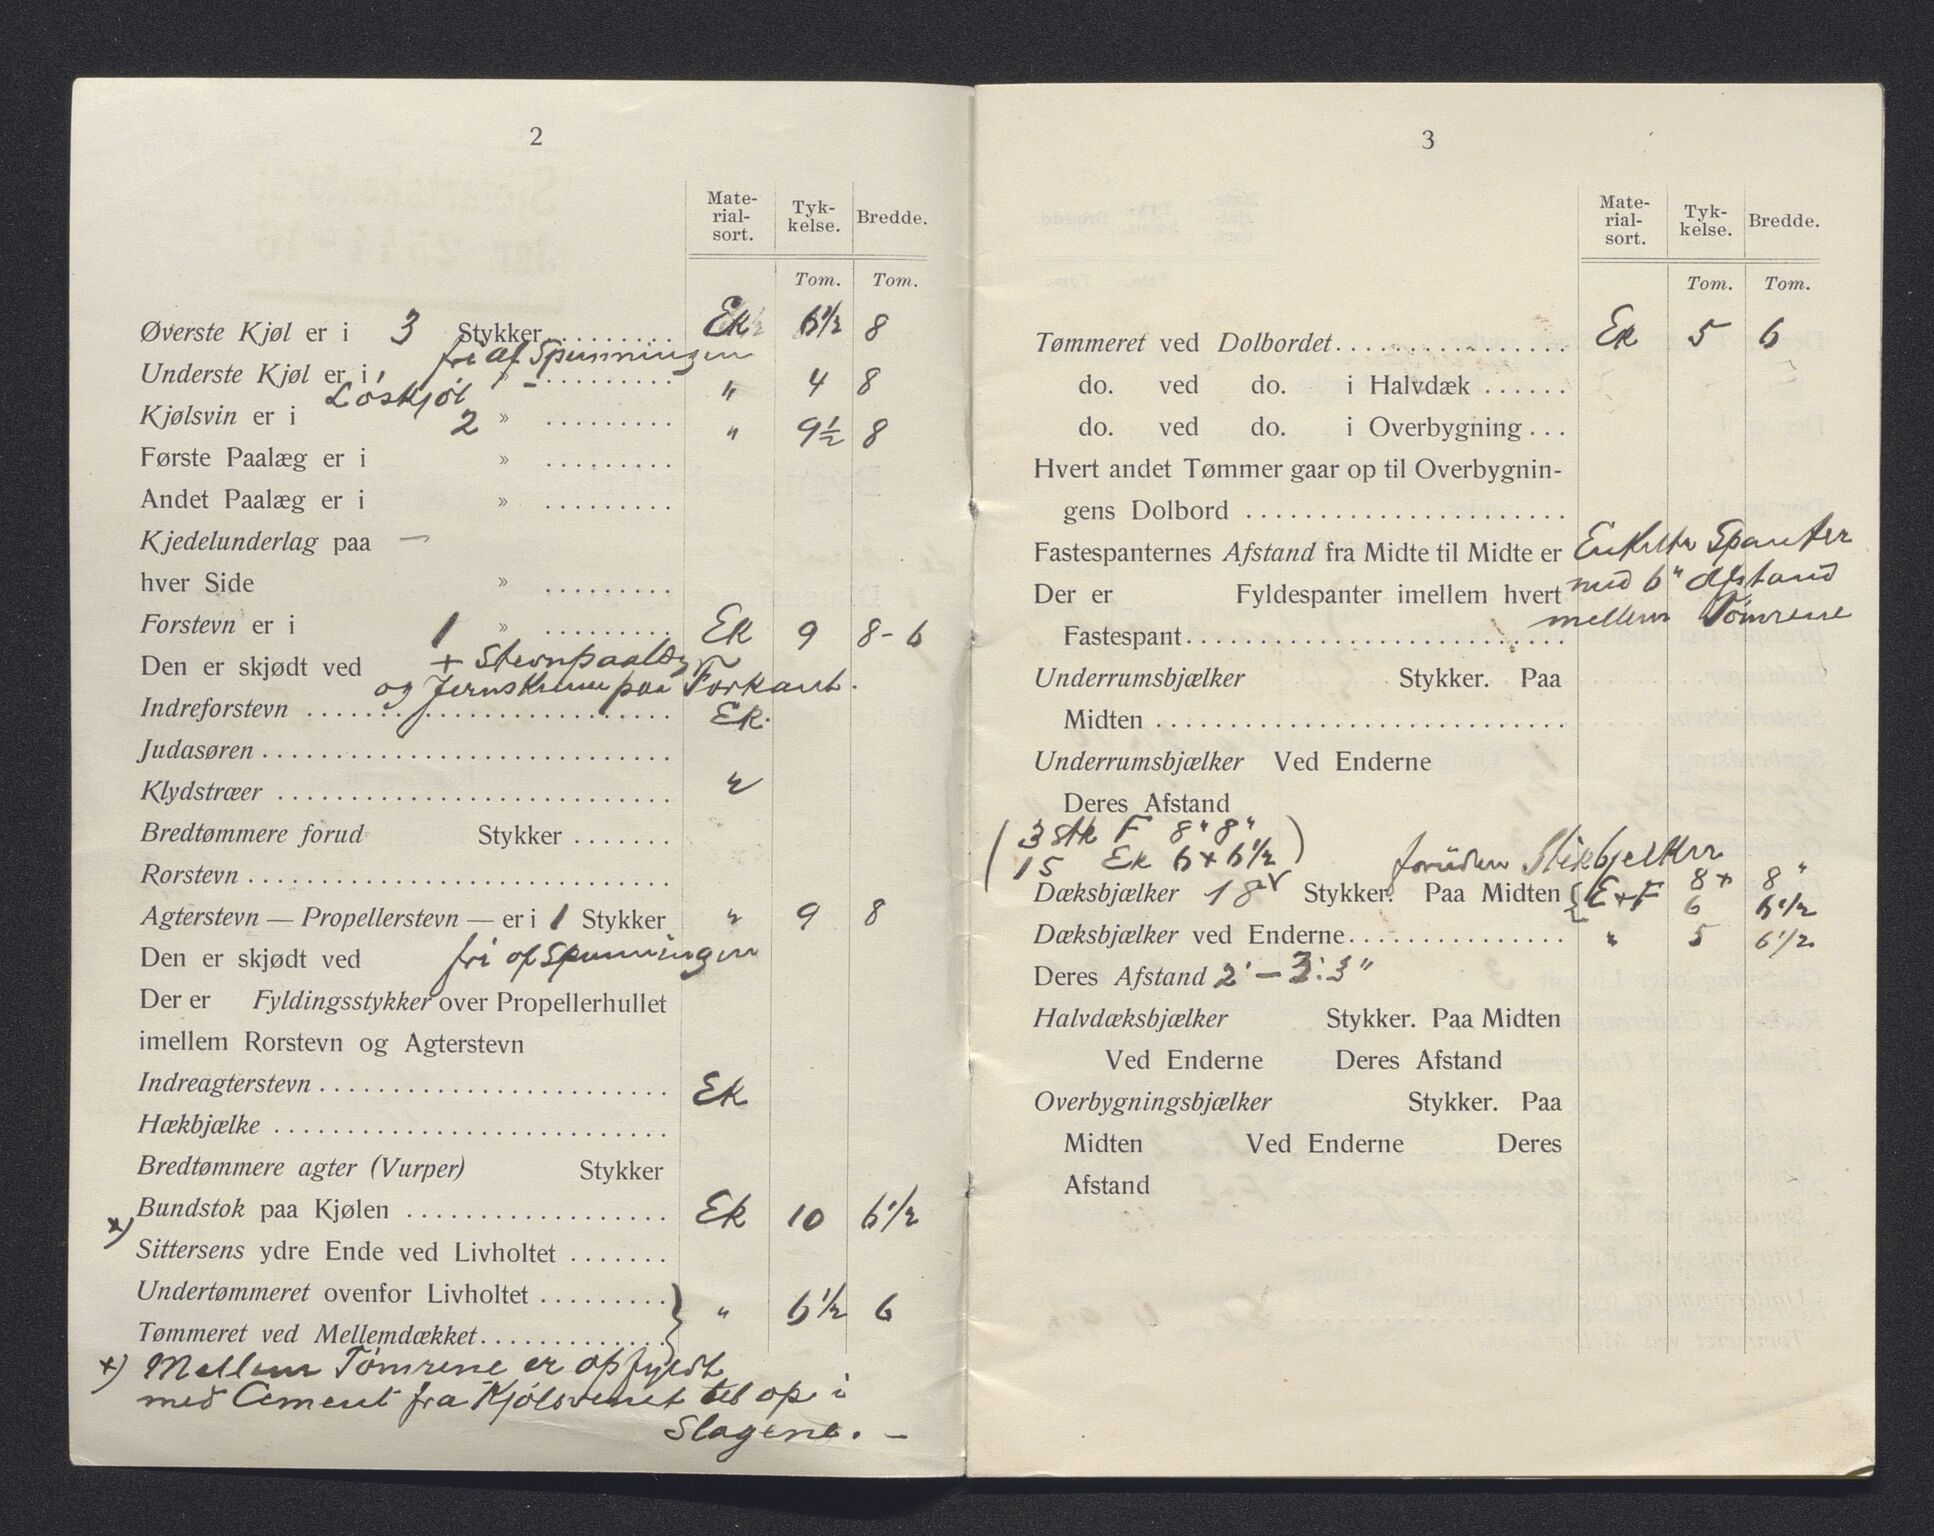 2
Mate-
rial-
sort.
Tyk-
kelse.
Bredde.
Tom. Tom.
Øverste Kjøl er i 3 Stykker ......... Ek 6 1/2 8
fri af Spunningen
Underste Kjøl er i » ......... " 4 8
Løskjøl
Kjølsvin er i 2 » ......... " 9 1/2 8
Første Paalæg er i » .........
Andet Paalæg er i » .........
Kjedelunderlag paa —
hver Side » .........
Forstevn er i 1 » ......... Ek 9 8-6
+ Stevnpaalæg
Den er skjødt ved
og Jernskinne paa Forkant.
Indreforstevn ......... Ek.
Judasøren .........
Klydstræer ......... "
Bredtømmere forud Stykker .......
Rorstevn .........
Agterstevn — Propellerstevn — er i 1 Stykker " 9 8
Den er skjødt ved fri af Spunningen
Der er Fyldingsstykker over Propellerhullet
imellem Rorstevn og Agterstevn
Indreagterstevn ......... Ek
Hækbjælke .........
Bredtømmere agter (Vurper) Stykker
Bundstok paa Kjølen ......... Ek 10 6 1/2
x)
Sittersens ydre Ende ved Livholtet .......
Undertømmeret ovenfor Livholtet ......... } " 6 1/2 6
Tømmeret ved Mellemdækket .........
x) Mellem Tømrene er opfyldt
med Cement fra Kjølsvinet til op i
Slagene. —
3
Mate-
rial-
sort.
Tyk-
kelse.
Bredde.
Tom. Tom.
Tømmeret ved Dolbordet ......... Ek 5 6
do. ved do. i Halvdæk ......
do. ved do. i Overbygning ...
Hvert andet Tømmer gaar op til Overbygnin-
gens Dolbord .........
Fastespanternes Afstand fra Midte til Midte er Enkelte Spanter
Der er Fyldespanter imellem hvert med 6" Afstand
mellem Tømrene
Fastespant .........
Underrumsbjælker Stykker. Paa
Midten .........
Underrumsbjælker Ved Enderne
Deres Afstand
(3 Stk F 8" 8"
15 Ek 6 x 6 1/2)
foruden Stikbjelker
Dæksbjælker 18 Stykker. Paa Midten { E+F 8 x 8"
6 6 1/2
Dæksbjælker ved Enderne ......... " 5 6 1/2
Deres Afstand 2' — 3'.3"
Halvdæksbjælker Stykker. Paa Midten
Ved Enderne Deres Afstand
Overbygningsbjælker Stykker. Paa
Midten Ved Enderne Deres
Afstand